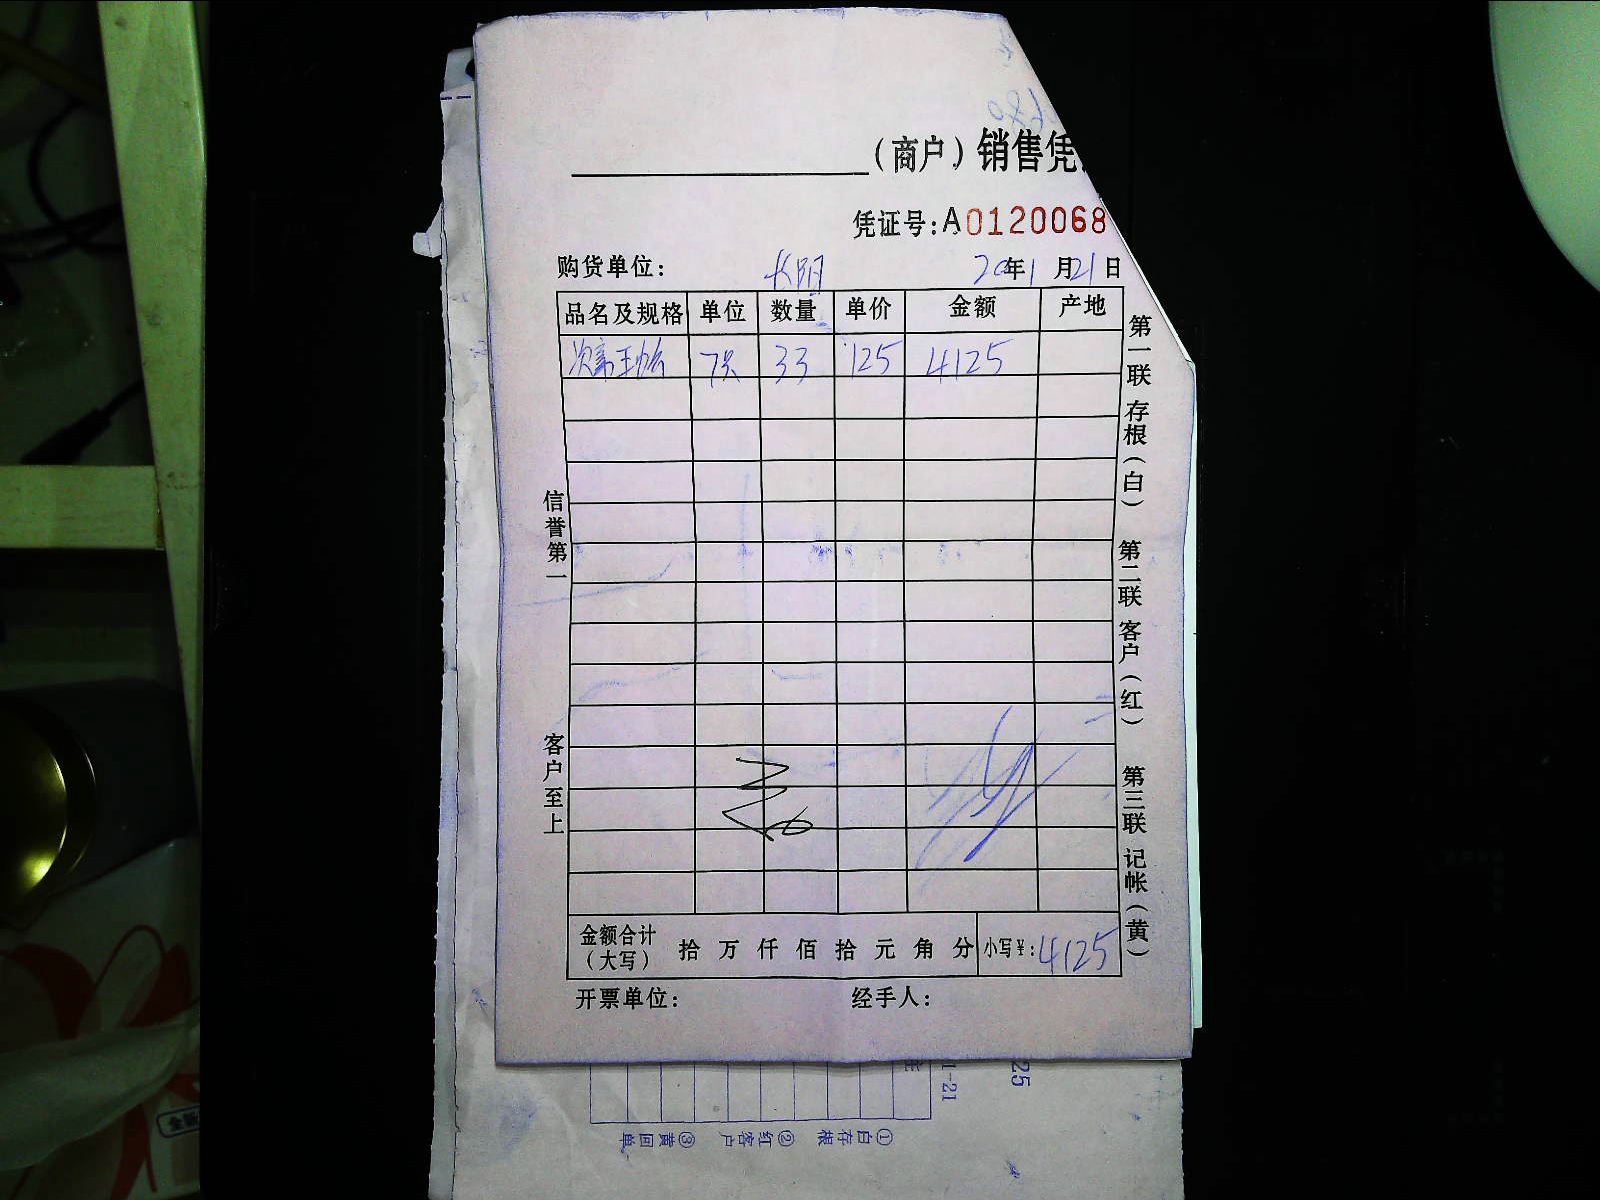 （商户）销售凭
凭证号:A0120068
购货单位: 长阳 20年1月21日
品名及规格 单位 数量 单价 金额 产地
33 125 4125
信誉第一
客户至上
第一联 存根（白） 第二联 客户（红） 第三联 记帐（黄）
金额合计（大写） 拾 万 仟 佰 拾 元 角 分 小写¥: 4125
开票单位: 经手人:
25
1-21
①白存根 ②红客户 ③黄回单